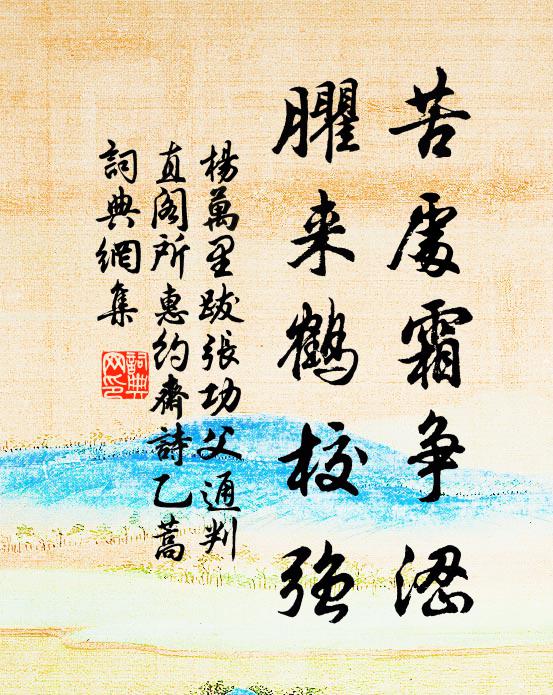 苦處霜争澀
臞来鶴校强
楊萬里跋張功父通判
直閣所惠約齋詩乙藁
詞典網集
詞典网印